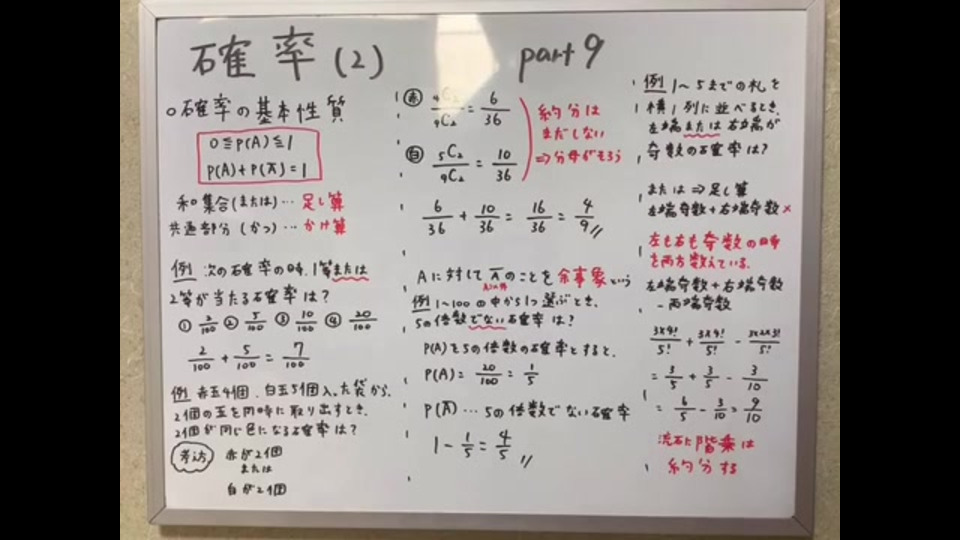 確率(2) part 9
○確率の基本性質
0≦P(A)≦1
P(A)+P(A̅)=1
和集合(または)…足し算
共通部分(かつ)…かけ算
例 次の確率の時、1等または
2等が当たる確率は?
① 2/100 ② 5/100 ③ 10/100 ④ 20/100
2/100 + 5/100 = 7/100
例 赤玉4個、白玉5個入った袋から、
2個の玉を同時に取り出すとき、
2個が同じ色になる確率は?
考え方 赤が2個
または
白が2個
赤 4C2/9C2 = 6/36
白 5C2/9C2 = 10/36
約分は
まだしない
⇒分母がそろう
6/36 + 10/36 = 16/36 = 4/9
Aに対してA̅のことを余事象という
例 1~100の中から1つ選ぶとき、
5の倍数でない確率は?
P(A)を5の倍数の確率とすると、
P(A)= 20/100 = 1/5
P(A̅)…5の倍数でない確率
1 - 1/5 = 4/5
例 1~5までの札を
横1列に並べるとき、
左端または右端が
奇数の確率は?
または⇒足し算
左端奇数+右端奇数×
左も右も奇数の時
を両方数えている。
左端奇数+右端奇数
-両端奇数
3×4!/5! + 3×4!/5! - 3×2×3!/5!
= 3/5 + 3/5 - 3/10
= 6/5 - 3/10 = 9/10
流石に階乗は
約分する